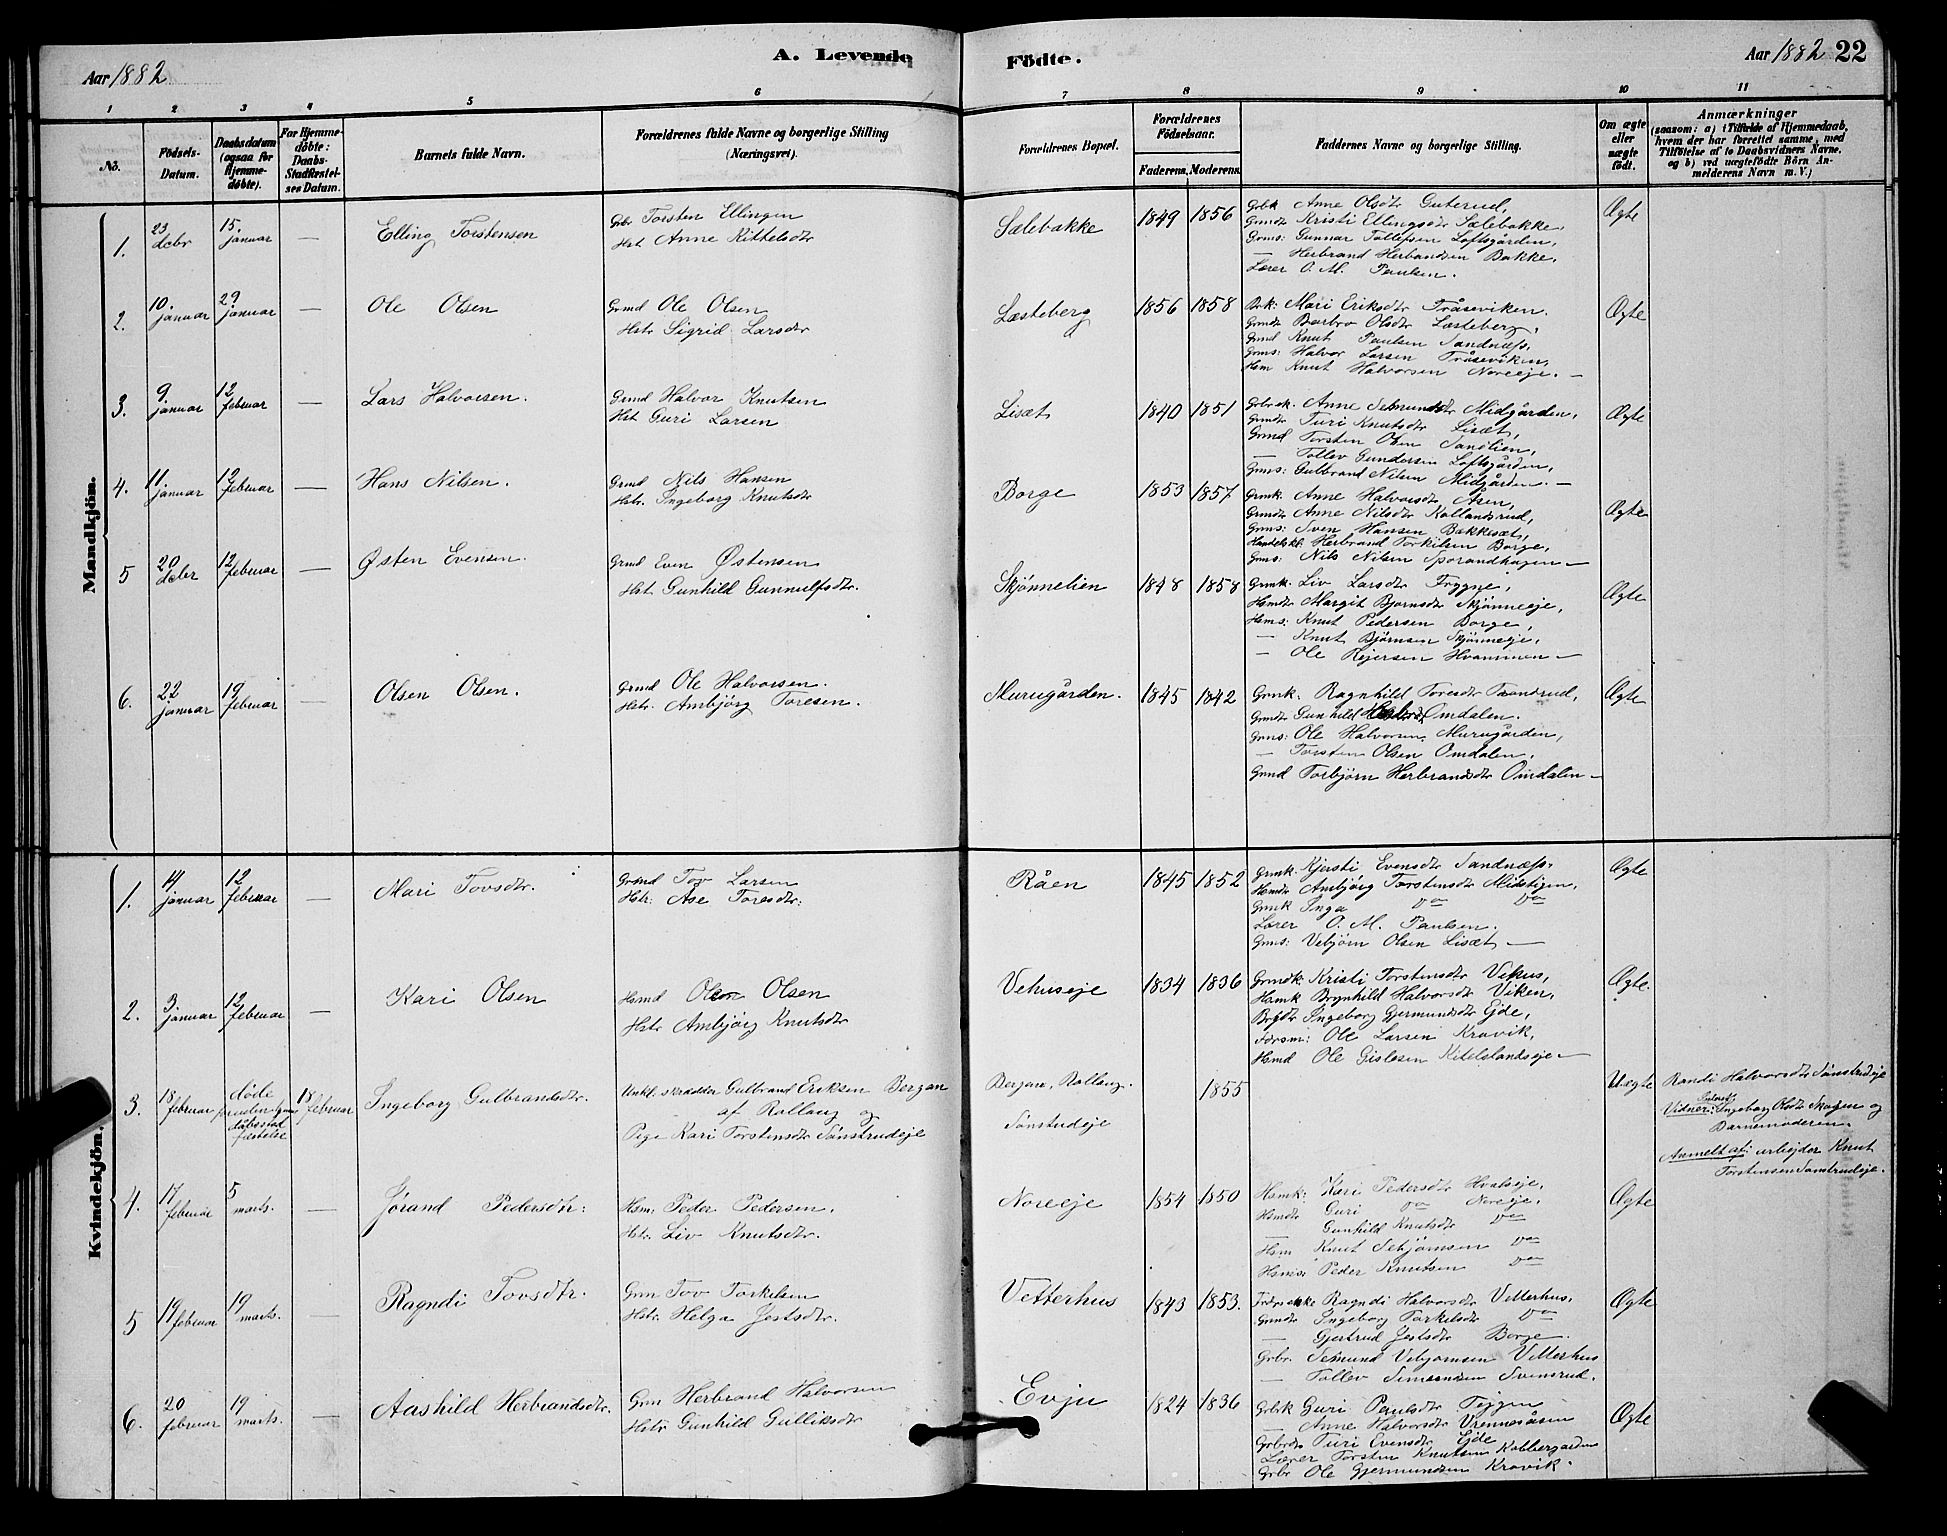 Aar 1882
A. Levende
Födte.
Aar 1882 22
1 2 3 4 5 6 7 8 9 10 11
No.
Fødsels-Datum.
Daabsdatum (ogsaa for Hjemme-døbte).
For Hjemme-døbte: Daabs-Stadfæstel-ses Datum.
Barnets fulde Navn.
Forældrenes fulde Navne og borgerlige Stilling (Næringsvei).
Forældrenes Bopæl.
Forældrenes Födselsaar.
Faderens. Moderens.
Faddernes Navne og borgerlige Stilling.
Om ægte eller uægte födt.
Anmærkninger
(saasom: a) i Tilfælde af Hjemmedaab,
hvem der har forrettet samme, med
Tilföielse af to Daabsvidners Navne,
og b) ved uægtefödte Börn An-
melderens Navn m. V.)
Mandkjön.
1. 23 debr 15 januar — Elling Torstensen
Gbr Torsten Ellingen
Hst. Anne Kittelsdtr
Sælebakke 1849 1856
Gbk Anne Olsdtr Guterud,
Grmdtr Kristi Ellingsdtr Sælebakke,
Grms: Gunnar Tollefsen Loftsgården,
— Herbrand Herbandsen Bakke,
Lærer O. M. Paulsen.
Ægte
2. 10 januar 29 januar — Ole Olsen
Grmd Ole Olsen
Hstr Sigrid Larsdtr
Læsteberg 1856 1858
Mari Eriksdtr Tråseviken.
Grmdtr Barbro Olsdtr Læsteberg,
Grmd Knut Paulsen Sandnæss,
Grms: Halvor Larsen Tråseviken,
Hsm Knut Halvorsen Noreeje. —
Ægte
3. 9 januar 12 februar — Lars Halvorsen.
Grmd Halvor Knutsen
Hst Guri Larsen
Lisæt 1840 1851
Gbrek. Anne Semundsdtr Midgården,
Grmdtr Turi Knutsdtr Lisæt,
Grmd Torsten Olsen Sandlien,
— Tollev Gundersen Loftsgården,
Grms: Gulbrand Nilsen Midgården. —
Ægte
4. 11 januar 12 februar — Hans Nilsen.
Grmd Nils Hansen
Hstr. Ingeborg Knutsdtr
Borge 1853 1857
Grmk. Anne Halvorsdtr Åsen,
Grmdtr Anne Nilsdtr Kollandsrud,
Grms: Sven Hansen Bakkesæt,
Handelskl. Herbrand Torkilsen Borge,
Grms: Nils Nilsen Sporandhagen —
Ægte
5 20 debr 12 februar — Østen Evensen.
Grmd Even Østensen
Hst. Gunhild Gunnulfsdtr.
Skjønnelien 1848 1858
Grmk. Liv Larsdtr Tryggne,
Hsmdtr Margit Bjørnsdtr Skjønneeje,
Hsms: Knut Pedersen Borge,
— Knut Bjørnsen Skjønneeje,
— Ole Rejersen Hvammen —
Ægte
6. 22 januar 19 februar — Olsen Olsen.
Grmd Ole Halvorsen.
Hstr. Ambjørg Toresen.
Murugården. 1845 1842
Grmk. Ragnhild Toresdtr Trondrud,
Grmdtr Gunhild Omdalen.
Grms: Ole Halvorsen Murugården,
— Torsten Olsen Omdalen,
Grmd Torbjørn Herbrandsdtr Omdalen —
Ægte
Kvindekjön.
1. 14 januar 12 februar — Mari Tovsdtr.
Grmd Tov Larsen
Hstr: Åse Toresdtr:
Råen 1845 1852
Grmk. Kjersti Evensdtr Sandnæss.
Hsmdtr Ambjørg Torstensdtr Midstigen,
Grmk Inga Do Do
Lærer O. M. Paulsen.
Grms: Vebjørn Olsen Lisæt —
Ægte
2. 3 januar 12 februar — Kari Olsen
Hsmd Olsen Olsen
Hstr Ambjørg Knutsdtr
Vehuseje 1834 1836
Grmdk. Kristi Torstensdtr Vehus,
Hsmk Brynhild Halvorsdtr Viken,
Ingeborg Gjermundsdtr Ejde,
Ole Larsen Kravik,
Hsmd Ole Gislesen Kitelslandseje —
Ægte.
3. 18 februar døde foruden dåbsstadfæstelse 18 februar Ingeborg Gulbrandsdtr.
Unkl. skrædder Gulbrand Eriksen Bergan
af Rollaug og
Pige Kari Torstensdtr Sønstrudeje
Bergan, Rollaug.
Sønstudeje
1855
Uægte
Randi Halvorsdtr Sønstrudeje
Vidner: Ingeborg Olsdtr Skogen og
Barnemoderen.
Anmeldt af: arbejder Knut
Torstensen Sønstrudeje.
4. 17 februar 5 marts. — Jørand Pedersdtr:
Hsm: Peder Pedersen.
Hstr. Liv Knutsdtr.
Noreeje 1854 1850
Hsmk: Kari Pedersdtr Hvalseje,
Hsmdtr Guri Do Noreeje,
— Gunhild Knutsdtr Do
Hsm Knut Sebjørnsen Do
Hsms: Peder Knutsen Do
Ægte
5 19 februar 19 marts. — Ragndi Tovsdtr.
Grm Tov Torkelsen
Hstr. Helga Jestsdtr.
Vetterhus 1843 1853.
Ragndi Halvorsdtr Vetterhus,
Grmdtr Ingeborg Torkelsdtr Do
— Gjertrud Jestsdtr Borge.
Grbr. Semund Vebjørnsen Vetterhus
— Tollev Simensen Svensrud.
Ægte
6. 20 februar 19 marts. — Aashild Herbrandsdtr.
Grm Herbrand Halvorsen
Hstr Gunhild Gulliksdtr
Evju 1824 1836
Gbk Guri Paulsdtr Tejgen
— Anne Halvorsdtr Vrennesåsen
Grbrdtr Turi Evensdtr Ejde
Lærer Torsten Knutsen Kobbergarden
Grbr Ole Gjermundsen Kravik.
Ægte